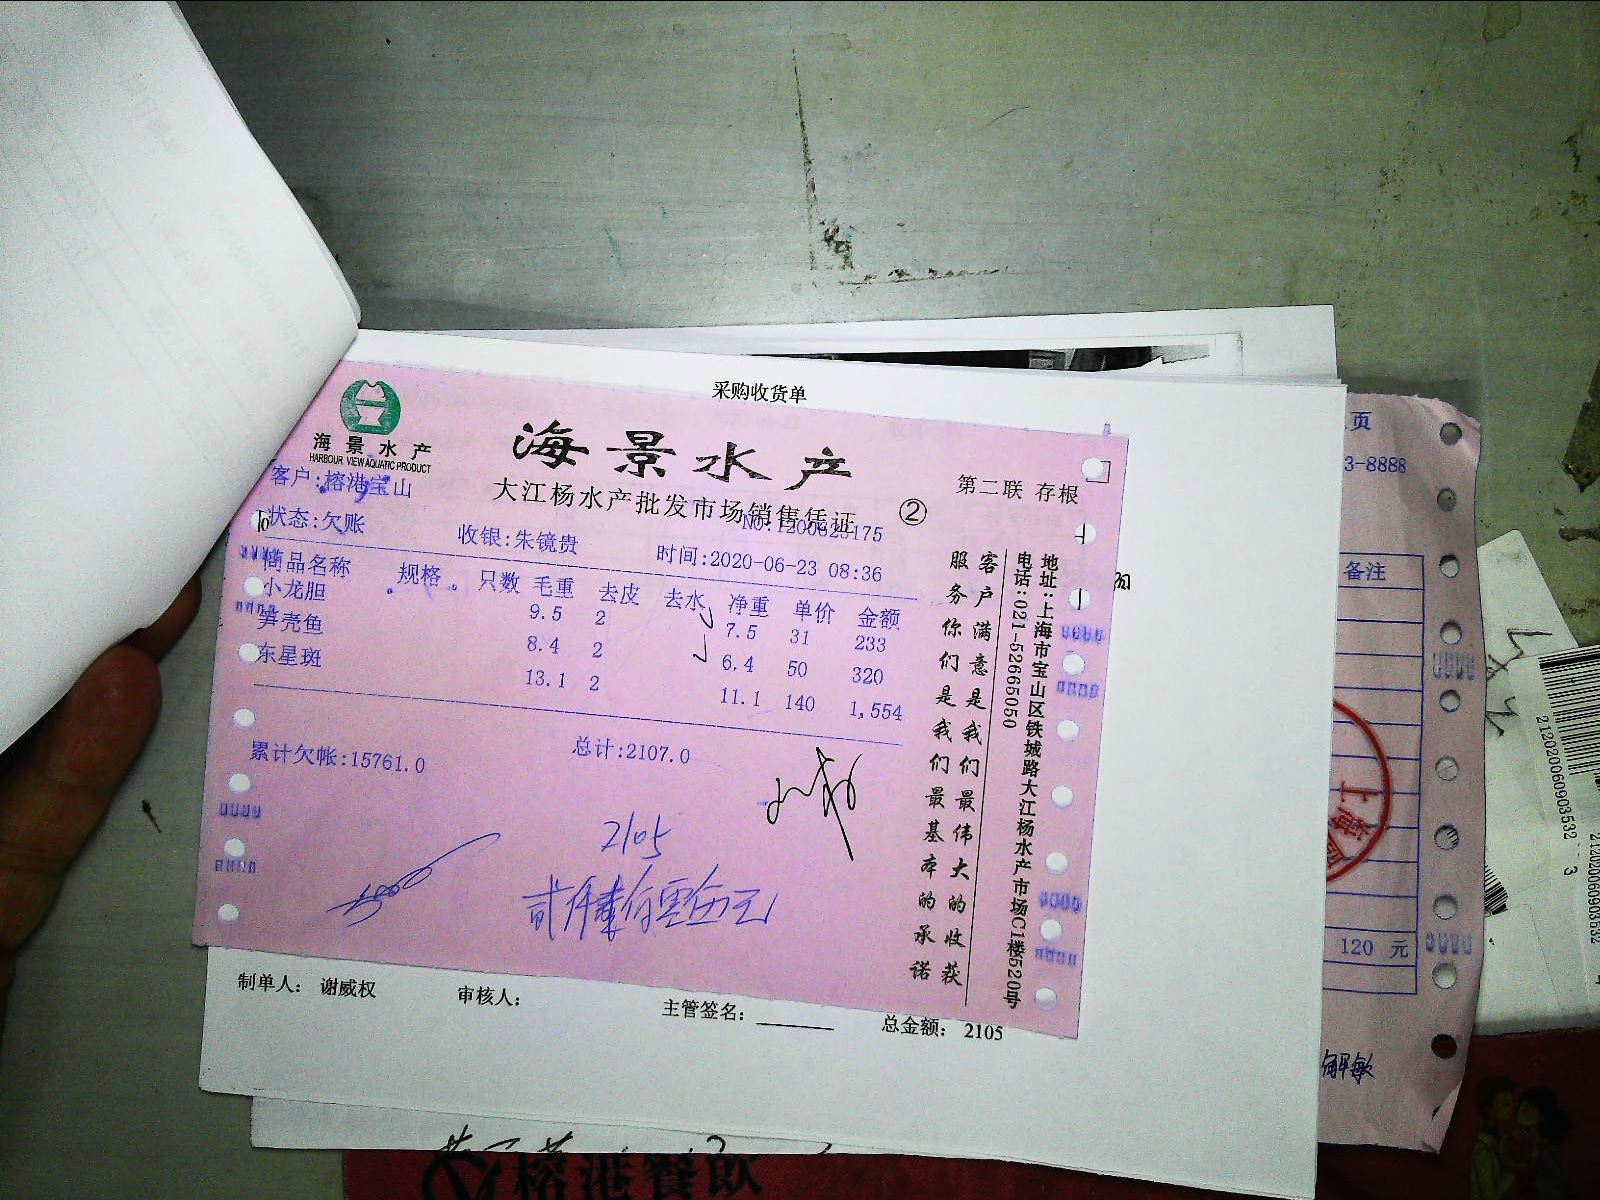 采购收货单
海景水产
HARBOUR VIEW AQUATIC PRODUCT
海景水产
大江杨水产批发市场销售凭证 ②
第二联 存根
客户:榕港宝山
NO:1200623175
状态:欠账 收银:朱镜贵 时间:2020-06-23 08:36
商品名称 规格 只数 毛重 去皮 去水 净重 单价 金额
小龙胆 9.5 2 7.5 31 233
笋壳鱼 8.4 2 6.4 50 320
东星斑 13.1 2 11.1 140 1,554
累计欠帐:15761.0 总计:2107.0
2105
贰仟壹佰零伍元
客户满意是我们最伟大的收获
服务你们是我们最基本的承诺
地址:上海市宝山区铁城路大江杨水产市场C1楼520号
电话:021-52665050
制单人: 谢威权 审核人: 主管签名: 总金额: 2105
页
3-8888
备注
上海
120 元
解敏
212020060903532 3
212020060903532
榕港餐飲